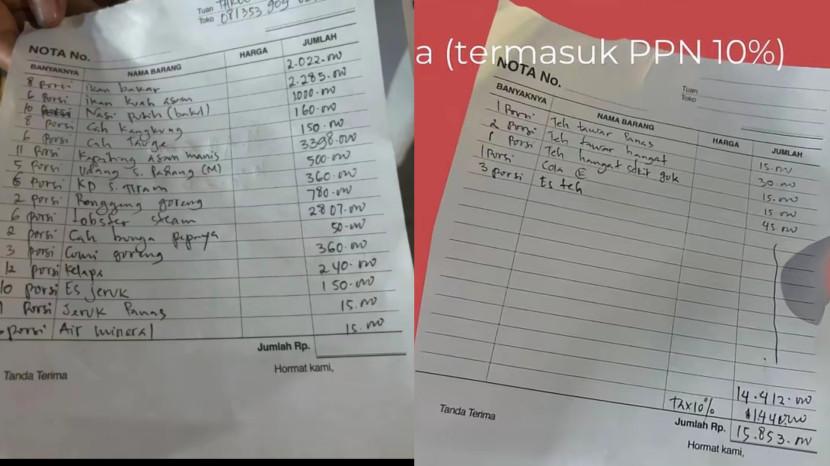 Tuan
Toko 081353 909
NOTA No.
BANYAKNYA NAMA BARANG HARGA JUMLAH
8 porsi ikan bakar 2.022.000
6 Porsi ikan kuah asam 2.285.000
10 Nasi putih (bakul) 1000.000
8 porsi Cah Kangkung 160.000
6 porsi Cah Tauge 150.000
11 Porsi Kepiting asam manis 3398.000
5 porsi Udang S. Padang (M) 500.000
porsi KP S. Tiram 360.000
2 porsi goreng 780.000
6 porsi Lobster steam 2807.000
2 porsi Cah bunga pepaya 50.000
3 Porsi Cumi goreng 360.000
12 porsi Kelapa 240.000
10 porsi Es Jeruk 150.000
1 Porsi Jeruk Panas 15.000
porsi Air mineral 15.000
Jumlah Rp.
Tanda Terima Hormat kami,
a (termasuk PPN 10%)
NOTA No.
Tuan
Toko
BANYAKNYA NAMA BARANG HARGA JUMLAH
1 Porsi Teh tawar Panas 15.000
2 Porsi Teh tawar hangat 30.000
1 Porsi Teh hangat sdkit gula 15.000
1 Porsi Cola 15.000
3 porsi Es teh 45.000
14.412.000
TAX10% 1.440.000
Jumlah Rp. 15.853.000
Tanda Terima Hormat kami,